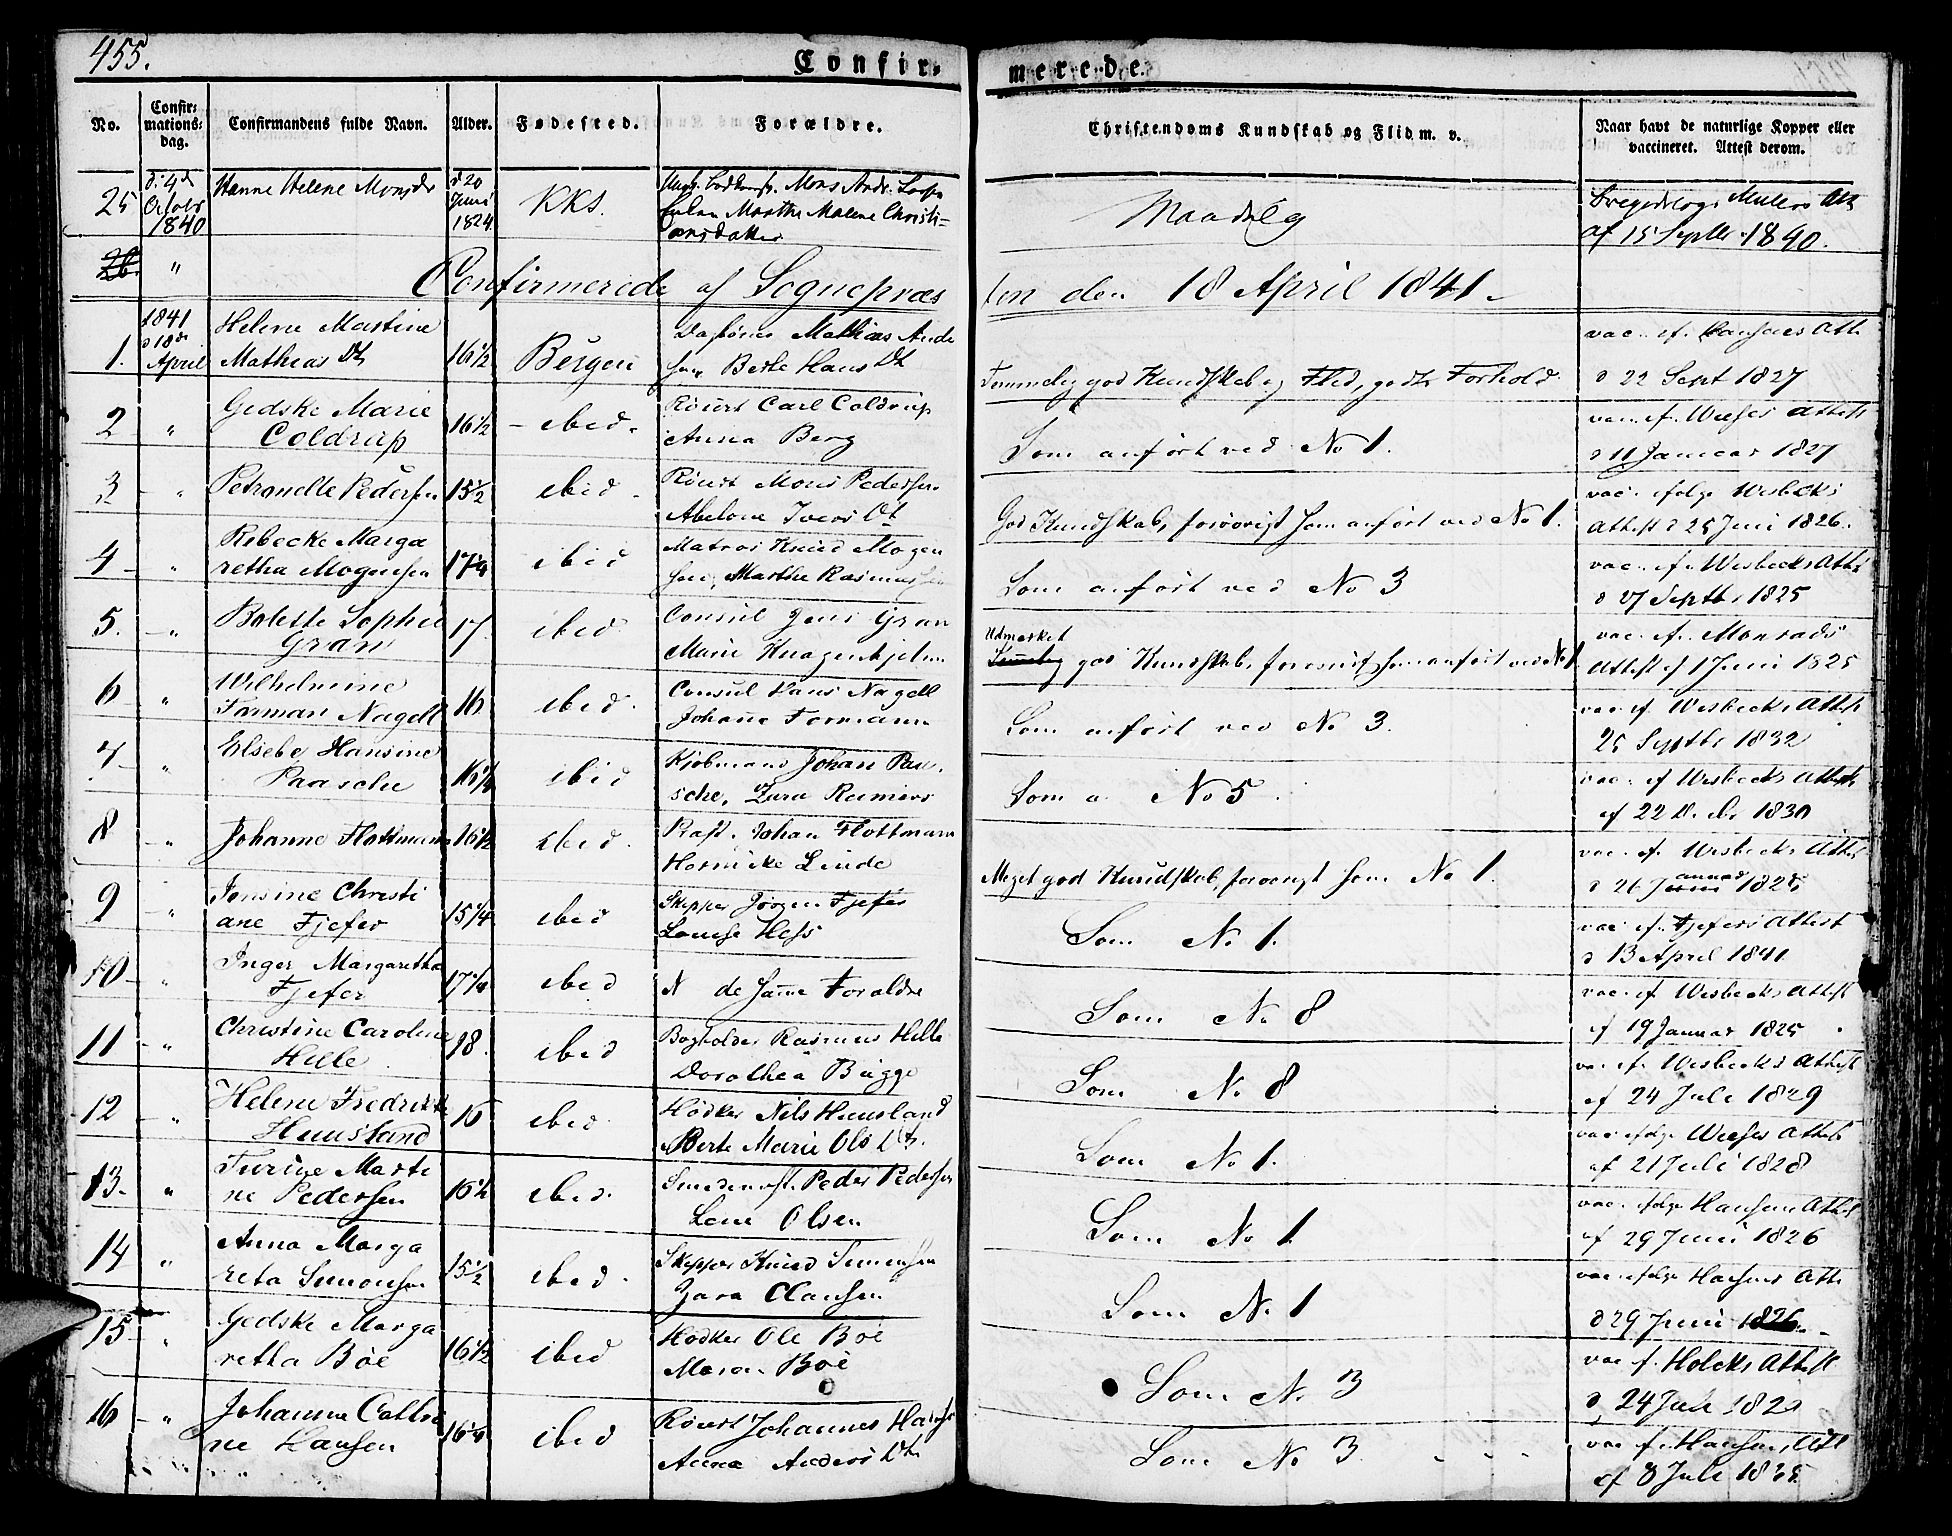 455.
Confir-
merede.
No.
Confir-
mations-
dag.
Confirmandens fulde Navn.
Alder.
Fødested.
Forældre.
Christendoms Kundskab og Flid m. v.
Naar havt de naturlige Kopper eller
vaccineret. Attest derom.
25
d. 4de
Octobr
1840
Hanne Helene Monsdr
d 20
Juni
1824
KKS.
Mons Andr.
Marthe Malene Christi-
ansdatter
Maadelig
af 15 Septbr 1840.
26.
"
Confirmerede af Sognepræs
ten den 18 April 1841.
1.
1841
d 18de
April
Helene Martine
Mathias Dt
16½
Bergen
Mathias Ande
sen Berte Hans Dt
Temmelig god Kundskab og Flid, godt Forhold.
vac. ef. Hansens Att.
d 22 Sept 1827
2
"
Gedske Marie
Coldrup
16½
- ibid.
Carl Coldrup
Anna Berg
Som anført ved No 1.
vac. ef. Wiesès Attest
d 11 Januar 1827
3
"
Petronelle Pedersen
15½
ibid.
Mons Pedersen
Abelone Ivers Dt
God Kundskab, forøvrigt som anført ved No 1.
vac. ifølge Wisbecks
Attest d 25 Juni 1826.
4
"
Rebecke Marga
retha Mogensen
17¼
ibid
Matros Knud Mogen
sen, Marthe Rasmussen
Som anført ved No 3
vac. ef. Wisbecks Att.
d 27 Septbr 1825
5.
"
Bolette Sophie
Gran
17.
ibid
Consul Jens Gran
Marie Knagenhjelm
Udmærket
Temmelig god Kundskab, forøvrigt som anført ved No 1
vac. ef. Monrads
Attest af 1 Juni 1825
6
"
Wilhelmine
Forman Nagell
16
ibid.
Consul Hans Nagell
Johanne Formann
Som anført ved No 3.
vac. ef. Wisbecks Attest
25 Septbr 1832
7
"
Elsebe Hansine
Paasche
16¼
ibid
Kjøbmand Johan Paa-
sche, Zara Reimers
Som a. No 5.
vac. ef Wisbecks Attest
af 22 1830
8
"
Johanne Flottmann
16½
ibid.
Johan Flottmann
Linde
Meget god Kundskab, forøvrigt som No 1.
vac. ef. Wisbecks Attest
d 26 Januar 1825
9
"
Jensine Christi
ane Fjefer
15¼
ibid
Skipper Jørgen Fjefer
Louise Hess
Som No 1.
vac. ef. Fjefers Attest
d 13 April 1841
10
"
Inger Margaretha
Fjefer
17¼
ibid
N de samme Forældre
Som No 8
vac. ef Wisbecks Attest
af 19 Januar 1825
11
"
Christine Caroline
Hille
18.
ibid
Bogholder Rasmus Hille
Dorothea Bugge
Som No 8
vac. ef. Wisbecks Attest
af 24 Juli 1829
12
"
Helene Fredrikke
Huusland
16
ibid.
Høker Nils Huusland
Berte Marie Ols Dt.
Som No 1.
vac. ifølge Wieses Attest
af 21 Juli 1828
13.
"
Turine Marti
ne Pedersen
16½
ibid.
Peder Pedersen
Lene Olsen
Som No 1
vac. ifølge Hansens Attest
af 29 Juni 1826
14
"
Anna Marga
reta Simonsen
15½
ibid.
Skipper Knud Simonsen
Zara Clausen
Som No 1
vac. ifølge Hansens Att.
d 29 Juni 1826.
15
"
Gedske Marga
retha Böe
16½
ibid
Høker Ole Böe
Maren Böe
Som No 3
vac ef. Holcks Attest
d. 24 Juli
16
"
Johanne Cathri
ne Hansen
16¼
ibid
Johannes Hansen
Anna Anders Dt
Som No 3.
vac ef. Hansens Att
af 8 Juli